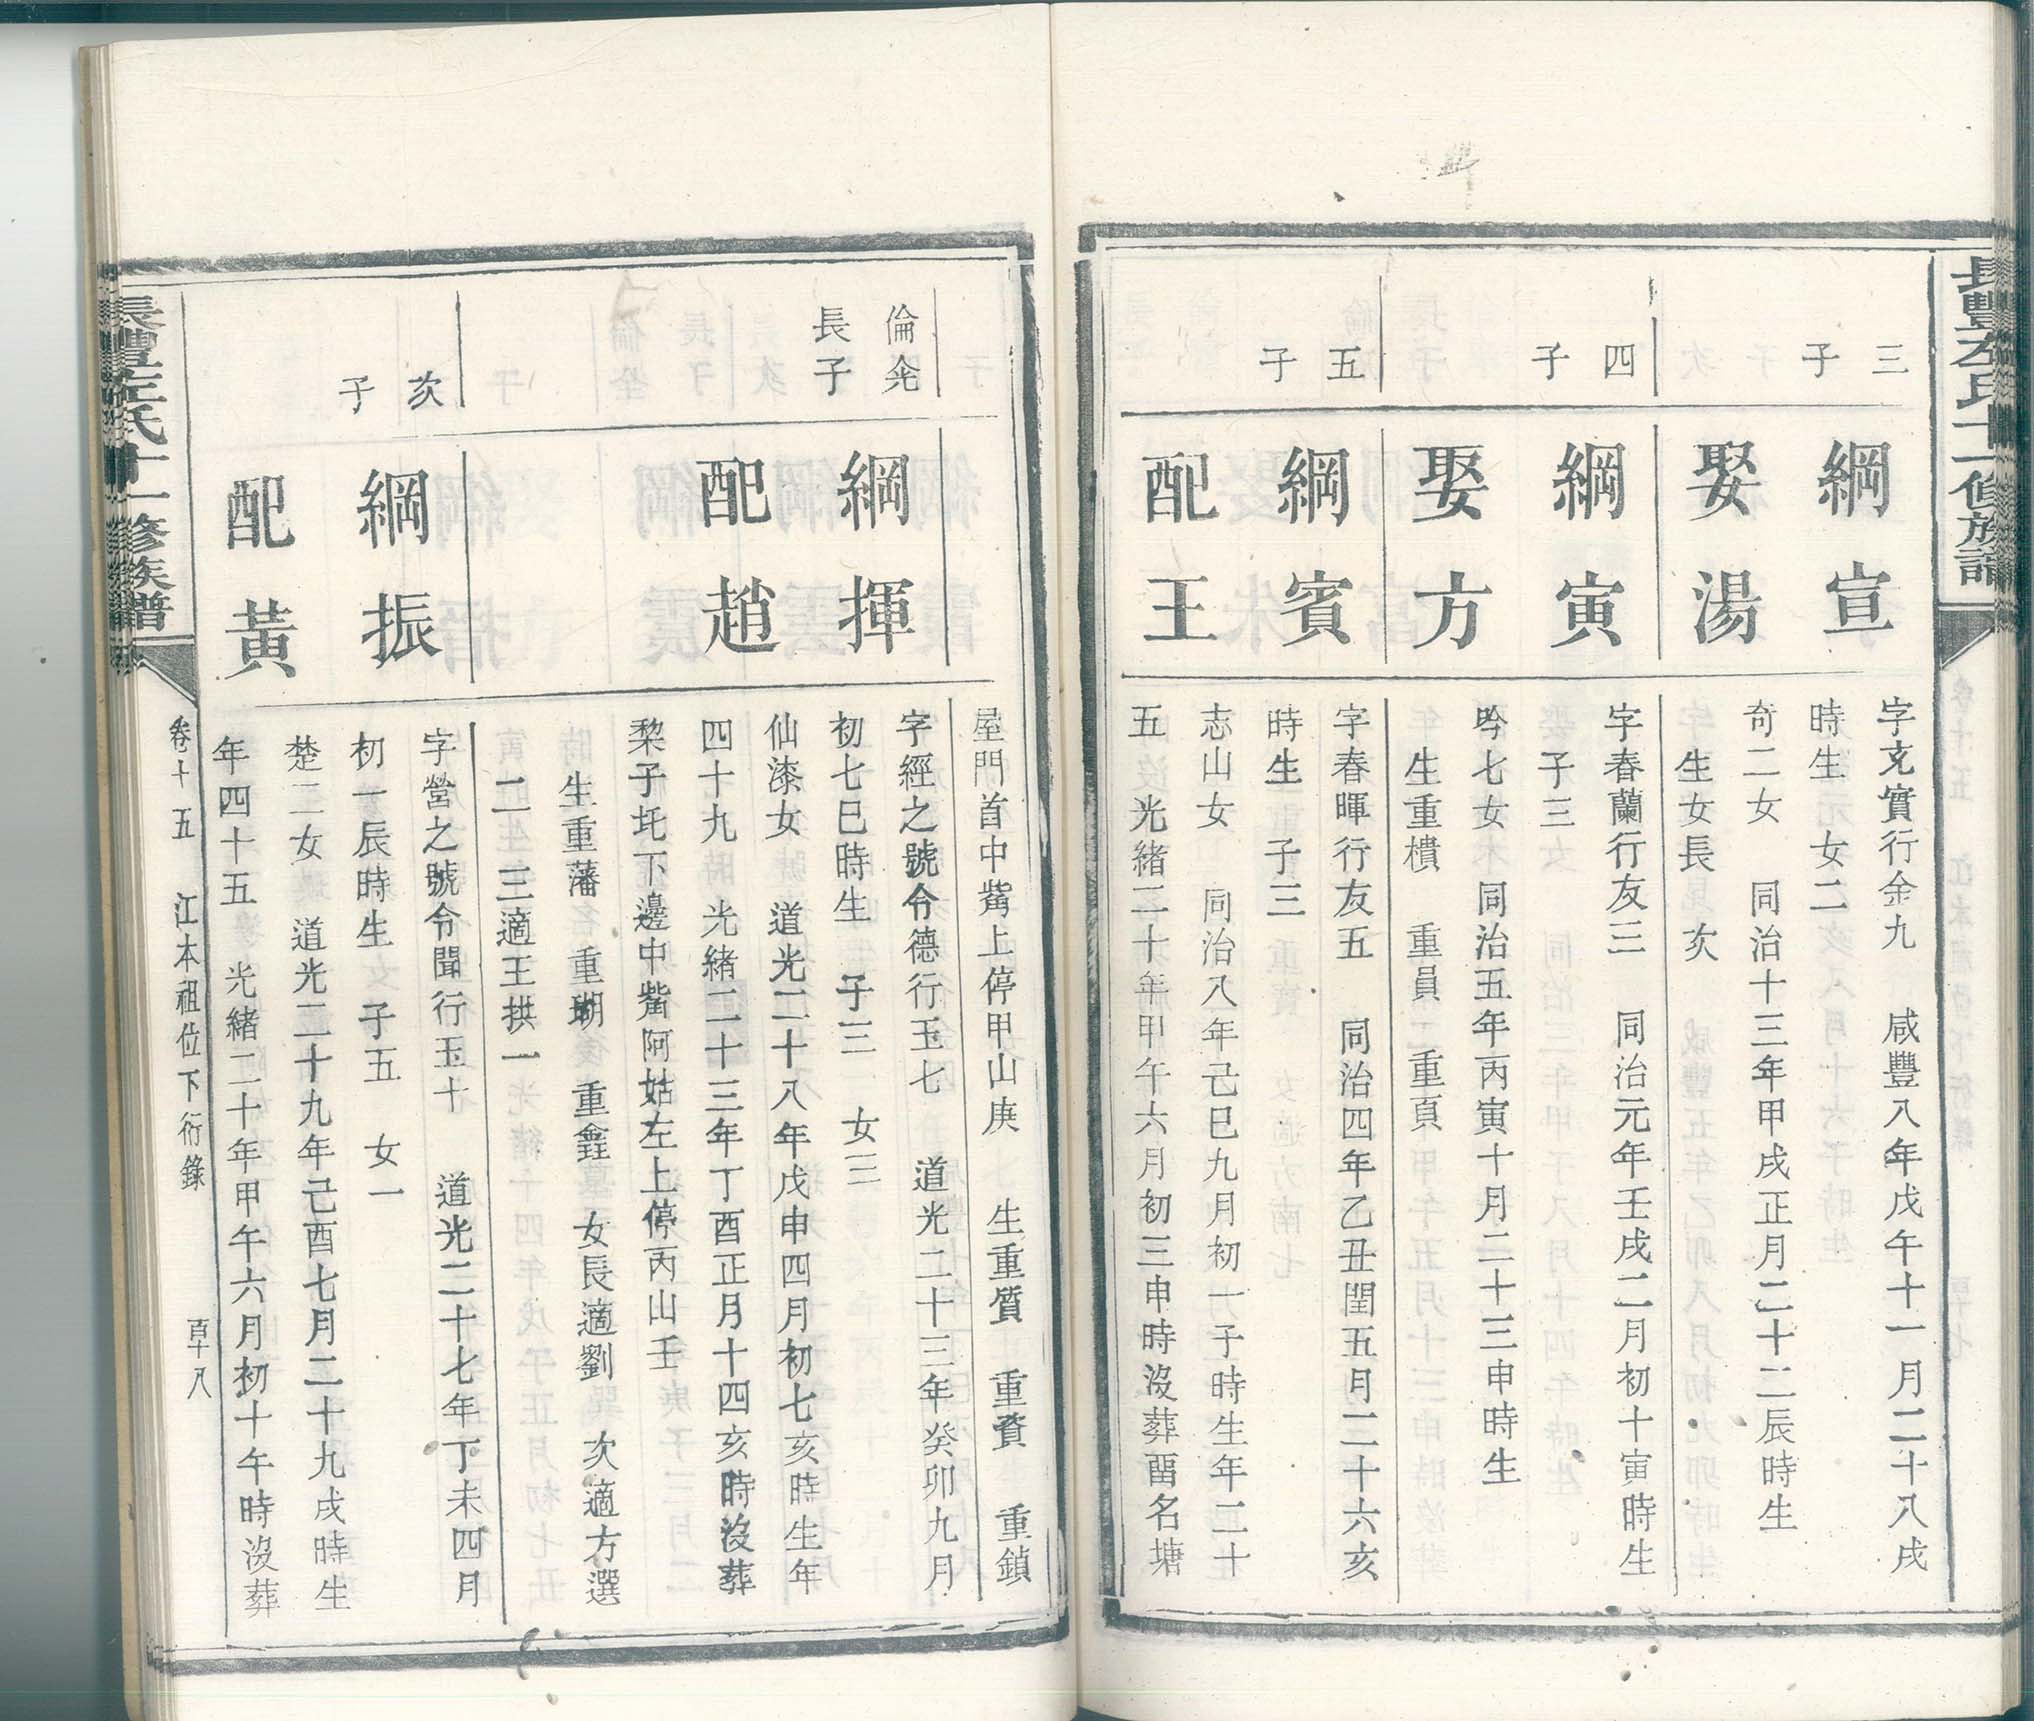 長豐左氏十一修族譜
三子
綱宣
娶湯
字文實行金九 咸豐八年戊午十一月二十八戌
時生 女二
奇二女 同治十三年甲戌正月二十二辰時生
生女長 次
四子
綱寅
娶方
字春蘭行友三 同治元年壬戌二月初十寅時生
子三
吟七女 同治五年丙寅十月二十三申時生
生重樻 重員 重頁
五子
綱賓
配王
字春暉行友五 同治四年乙丑閏五月二十六亥
時生 子三
志山女 同治八年己巳九月初一子時生年二十
五 光緒二十年甲午六月初三申時沒葬畱名塘
屋門首中嘴上停甲山庚 生重質 重賫 重鎖
倫
長子
綱揮
配趙
字經之號令德行玉七 道光二十三年癸卯九月
初七巳時生 子三 女三
仙漆女 道光二十八年戊申四月初七亥時生年
四十九 光緒二十三年丁酉正月十四亥時沒葬
黎子圫下邊中嘴阿姑左上停丙山壬
生重藩 重瑚 重鑫 女長適劉 次適方選
二 三適王拱一
次子
綱振
配黃
字營之號令聞行玉十 道光二十七年丁未四月
初一辰時生 子五 女一
楚二女 道光二十九年己酉七月二十九戌時生
年四十五 光緒二十年甲午六月初十午時沒葬
長豐左氏十一修族譜
卷十五 江本祖位下衍錄 百十八